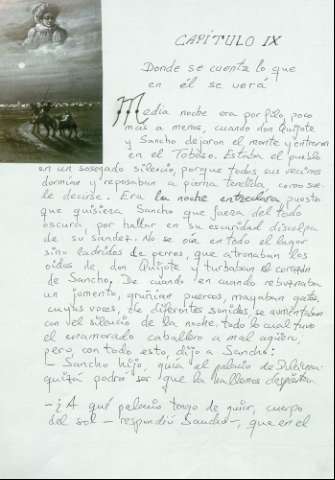 CAPÍTULO IX
Donde se cuenta lo que
en él se verá
Media noche era por filo, poco
más a menos, cuando don Quijote
y Sancho dejaron el monte y entraron
en el Toboso. Estaba el pueblo
en un sosegado silencio, porque todos sus vecinos
dormían y reposaban a pierna tendida, como sue-
le decirse. Era la noche entreclara, puesto
que quisiera Sancho que fuera del todo
oscura, por hallar en su escuridad disculpa
de su sandez. No se oía en todo el lugar
sino ladridos de perros, que atronaban los
oídos de don Quijote y turbaban el corazón
de Sancho. De cuando en cuando rebuznaba
un jumento, gruñían puercos, mayaban gatos,
cuyas voces, de diferentes sonidos, se aumentaban
con el silencio de la noche, todo lo cual tuvo
el enamorado caballero a mal agüero;
pero, con todo esto, dijo a Sancho:
— Sancho hijo, guía al palacio de Dulcinea:
quizá podrá ser que la hallemos despierta.
— ¿A qué palacio tengo de guiar, cuerpo
del sol — respondió Sancho —, que en el